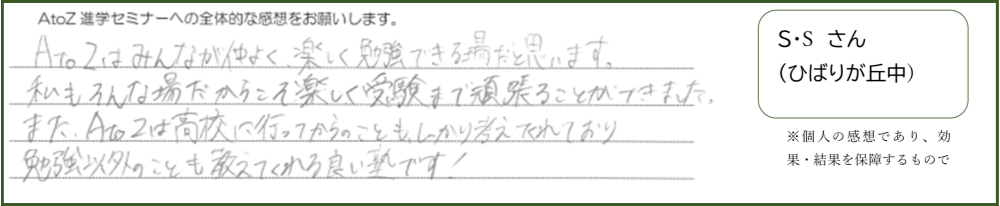 AtoZ 進学セミナーへの全体的な感想をお願いします。
AtoZはみんなが仲よく、楽しく勉強できる場だと思います。
私もそんな場だからこそ楽しく受験まで頑張ることができました。
また、AtoZは高校に行ってからのことも、しっかり考えてくれており
勉強以外のことも教えてくれる良い塾です！
S・S さん
（ひばりが丘中）
※個人の感想であり、効
果・結果を保障するもので